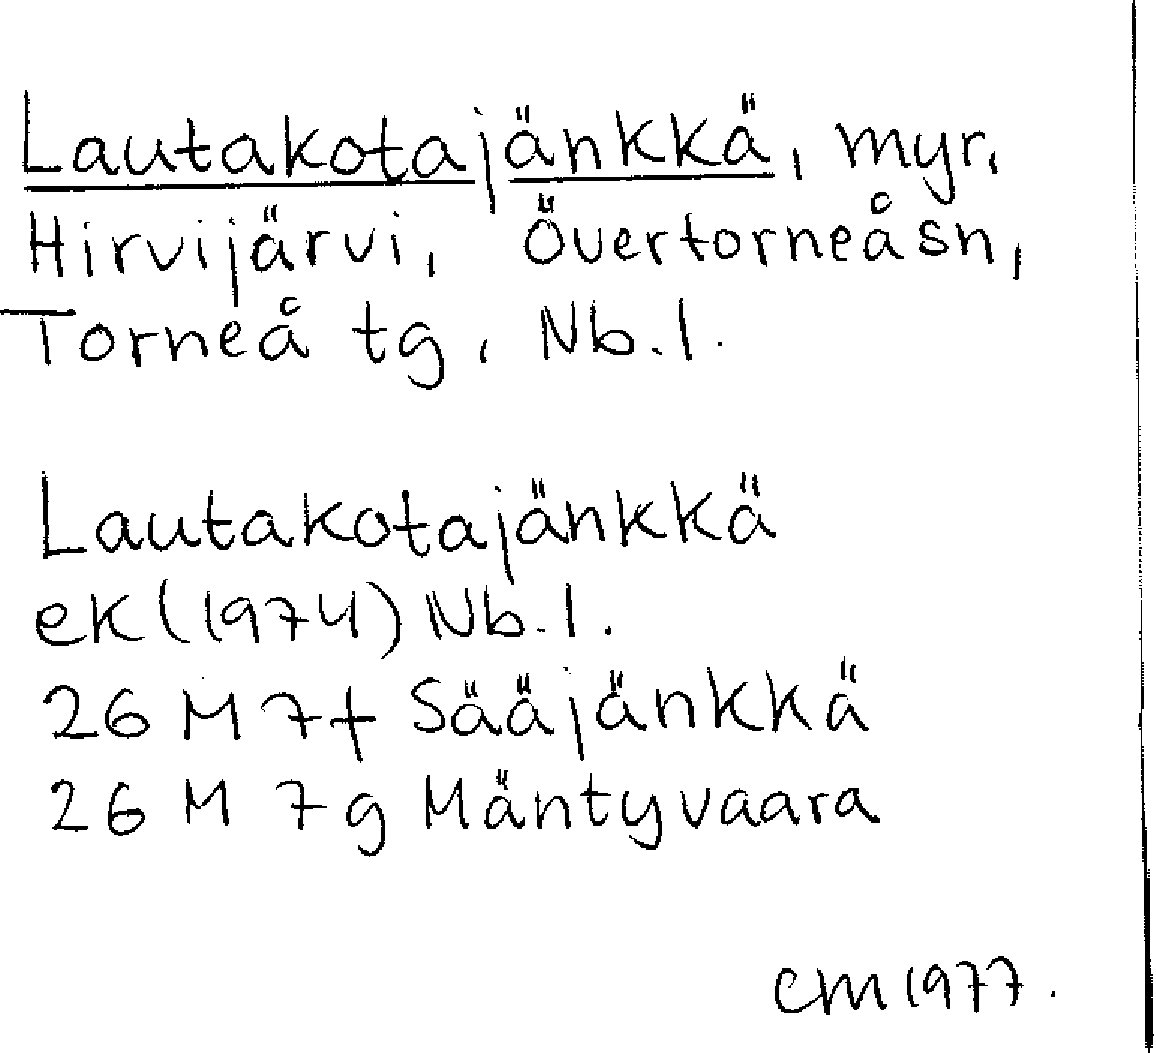 Lautakotajänkkä, myr,
Hirvijärvi, Övertorneå sn,
Torneå tg, Nb.l.
Lautakotajänkkä
ek (1974) Nb.l.
26 M 7f Sääjänkkä
26 M 7g Mäntyvaara
CM 1977.